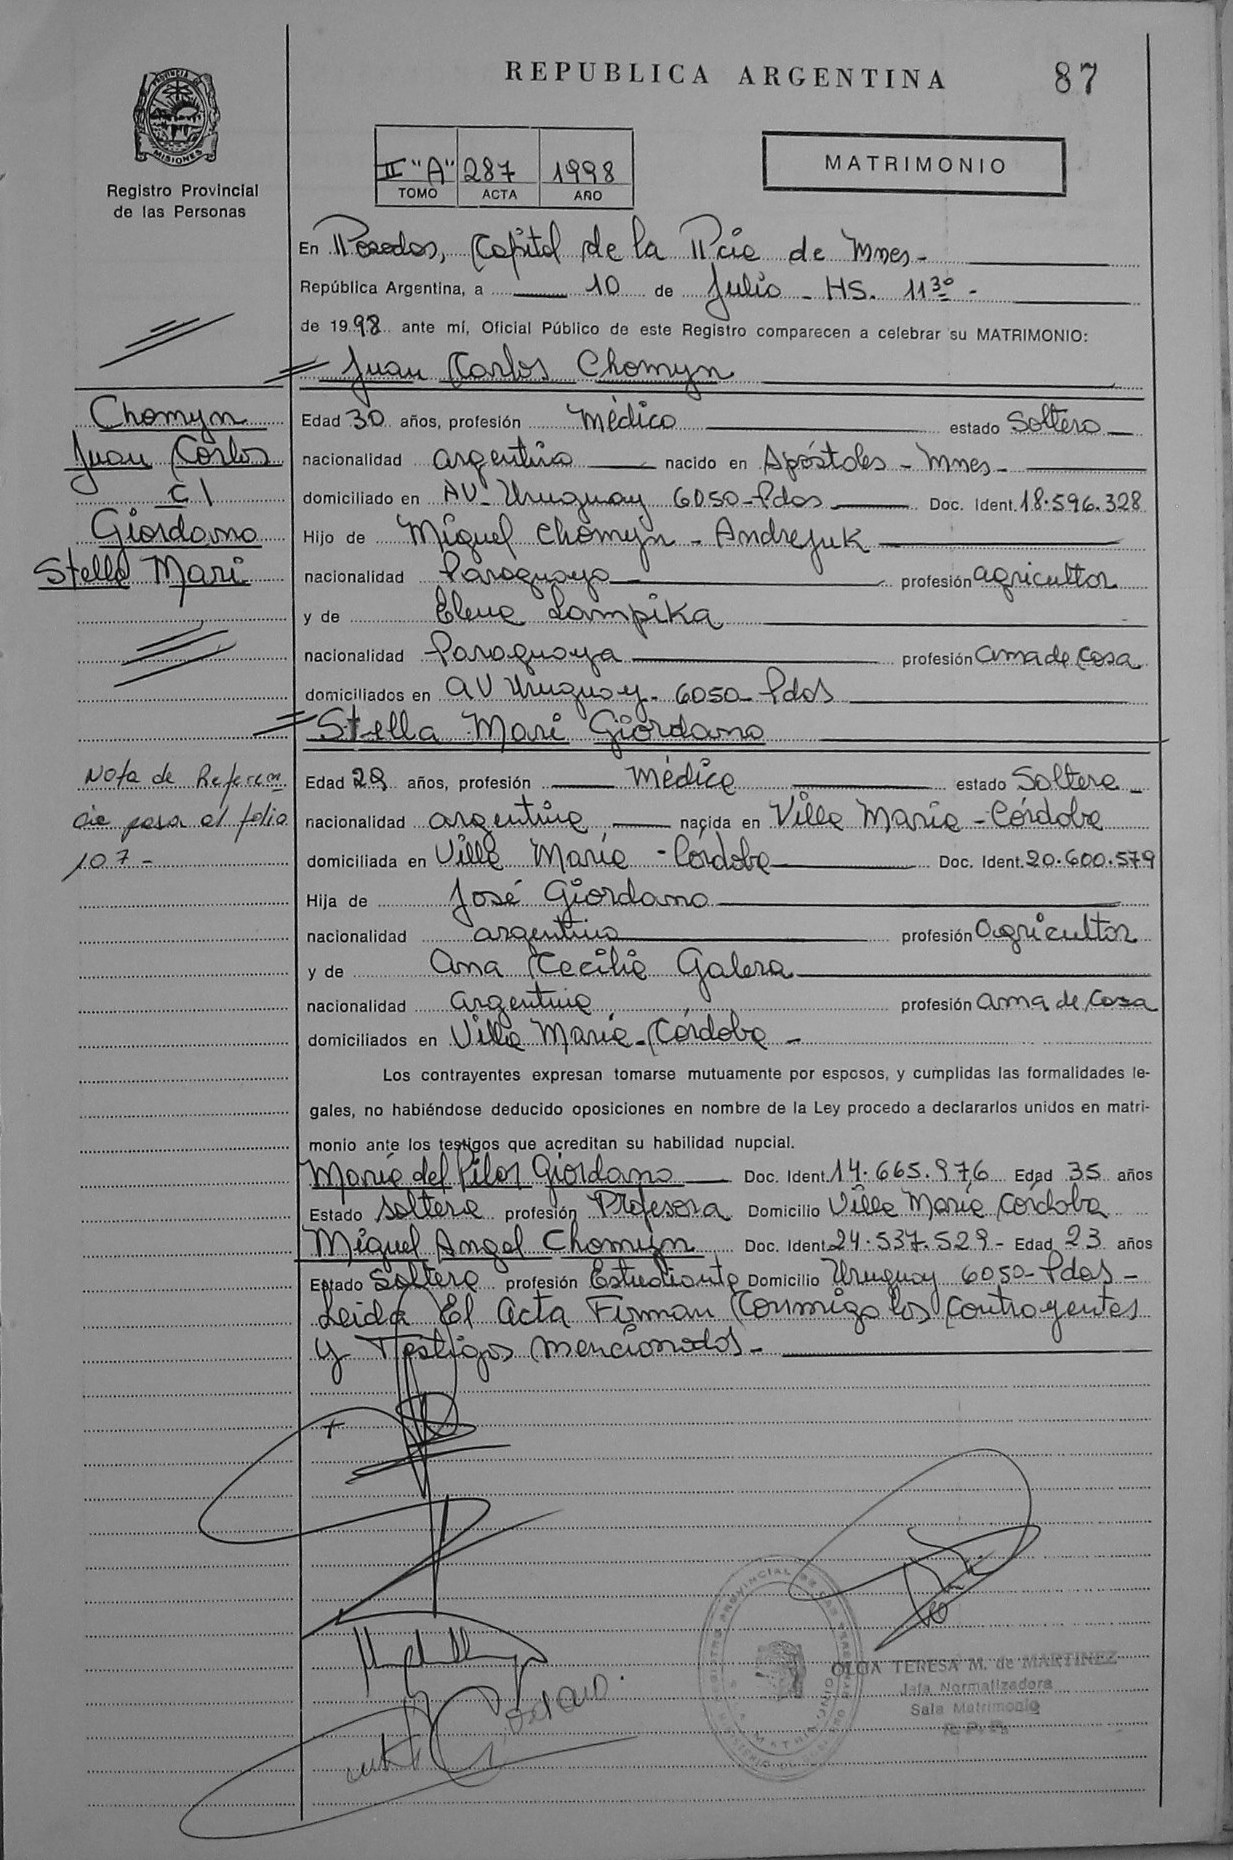 REPUBLICA ARGENTINA
87
PROVINCIA DE
MISIONES
Registro Provincial
de las Personas
II "A" 287 1998
TOMO ACTA AÑO
MATRIMONIO
En Posadas, Capital de la Pcia de Mnes-
República Argentina, a 10 de Julio - HS. 11 30 -
de 1998 ante mí, Oficial Público de este Registro comparecen a celebrar su MATRIMONIO:
Juan Carlos Chomyn
Chomyn
Juan Carlos
c/
Giordano
Stella Mari
Edad 30 años, profesión Médico estado Soltero
nacionalidad argentino nacido en Apóstoles - Mnes-
domiciliado en AV- Uruguay 6050-Pdas Doc. Ident. 18.596.328
Hijo de Miguel Chomyn - Andrejuk
nacionalidad Paraguayo profesión agricultor
y de Elena Lampika
nacionalidad Paraguaya profesión ama de casa
domiciliados en AV Uruguay- 6050- Pdas
Stella Mari Giordano
Nota de Referen
cia pasa al folio
107-
Edad 29 años, profesión Médica estado Soltera
nacionalidad argentina nacida en Villa María - Córdoba
domiciliada en Villa María - Córdoba Doc. Ident. 20.600.579
Hija de José Giordano
nacionalidad argentino profesión agricultor
y de Ana Cecilia Galera
nacionalidad argentina profesión ama de casa
domiciliados en Villa María-Córdoba -
Los contrayentes expresan tomarse mutuamente por esposos, y cumplidas las formalidades le-
gales, no habiéndose deducido oposiciones en nombre de la Ley procedo a declararlos unidos en matri-
monio ante los testigos que acreditan su habilidad nupcial.
María del Pilar Giordano Doc. Ident. 14.665.976 Edad 35 años
Estado soltera profesión Profesora Domicilio Villa María Córdoba
Miguel Angel Chomyn Doc. Ident. 24.537.529- Edad 23 años
Estado Soltero profesión Estudiante Domicilio Uruguay 6050-Pdas-
Leida El Acta Firman Conmigo los Contrayentes
y Testigos mencionados-
OLGA TERESA M. de MARTINEZ
Jefa Normatizadora
Sala Matrimonio
R. P. P.